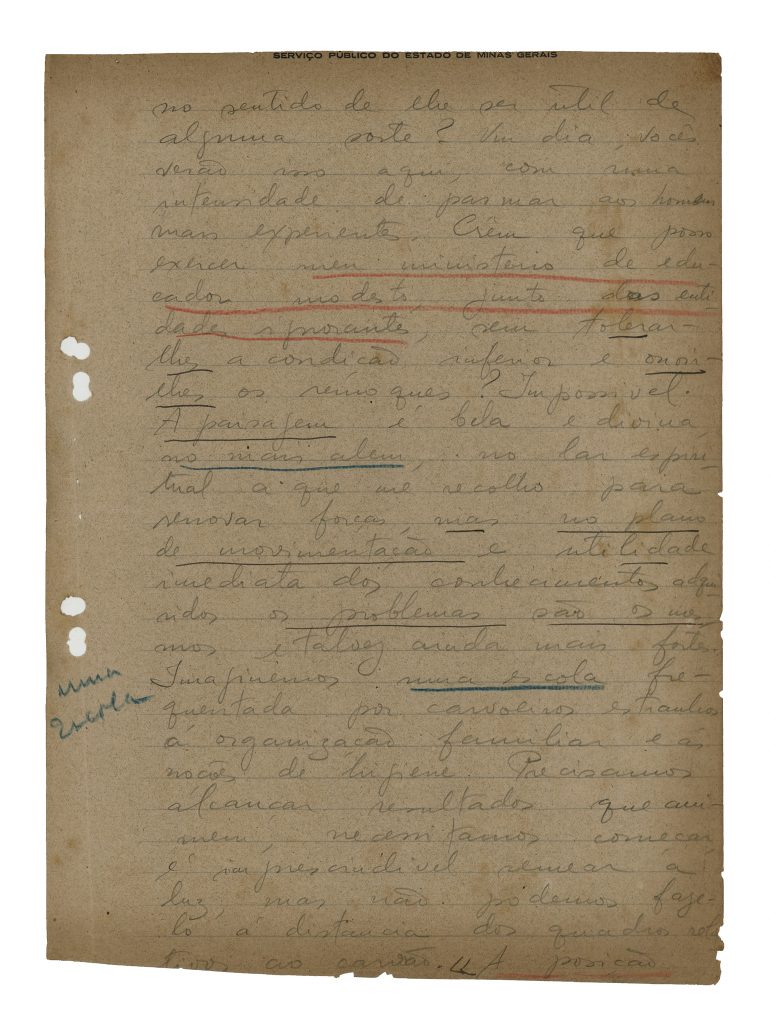 SERVIÇO PÚBLICO DO ESTADO DE MINAS GERAIS
no sentido de lhe ser útil de
alguma sorte? Um dia, vocês
verão isso aqui, com uma
intensidade de pasmar aos homens
mais experientes. Crêm que posso
exercer meu ministério de edu-
cador modesto, junto das enti-
dades ignorantes, sem tolerar-
lhes a condição inferior e ouvir-
lhes os remoques? Impossivel.
A paisagem é bela e divina
no mais alem, no lar espiri-
tual a que me recolho para
renovar forças, mas no plano
de movimentação e utilidade
imediata dos conhecimentos adqui-
ridos os problemas são os mes-
mos e talvez ainda mais fortes.
Imaginemos uma escola fre-
quentada por carvoeiros estranhos
uma
escola
á organização familiar e ás
noções de higiene. Precisamos
alcançar resultados que ani-
mem, necessitamos começar,
é imprescindivel semear a
luz, mas não podemos faze-
lo á distancia dos quadros rela
tivos ao carvão. A posição